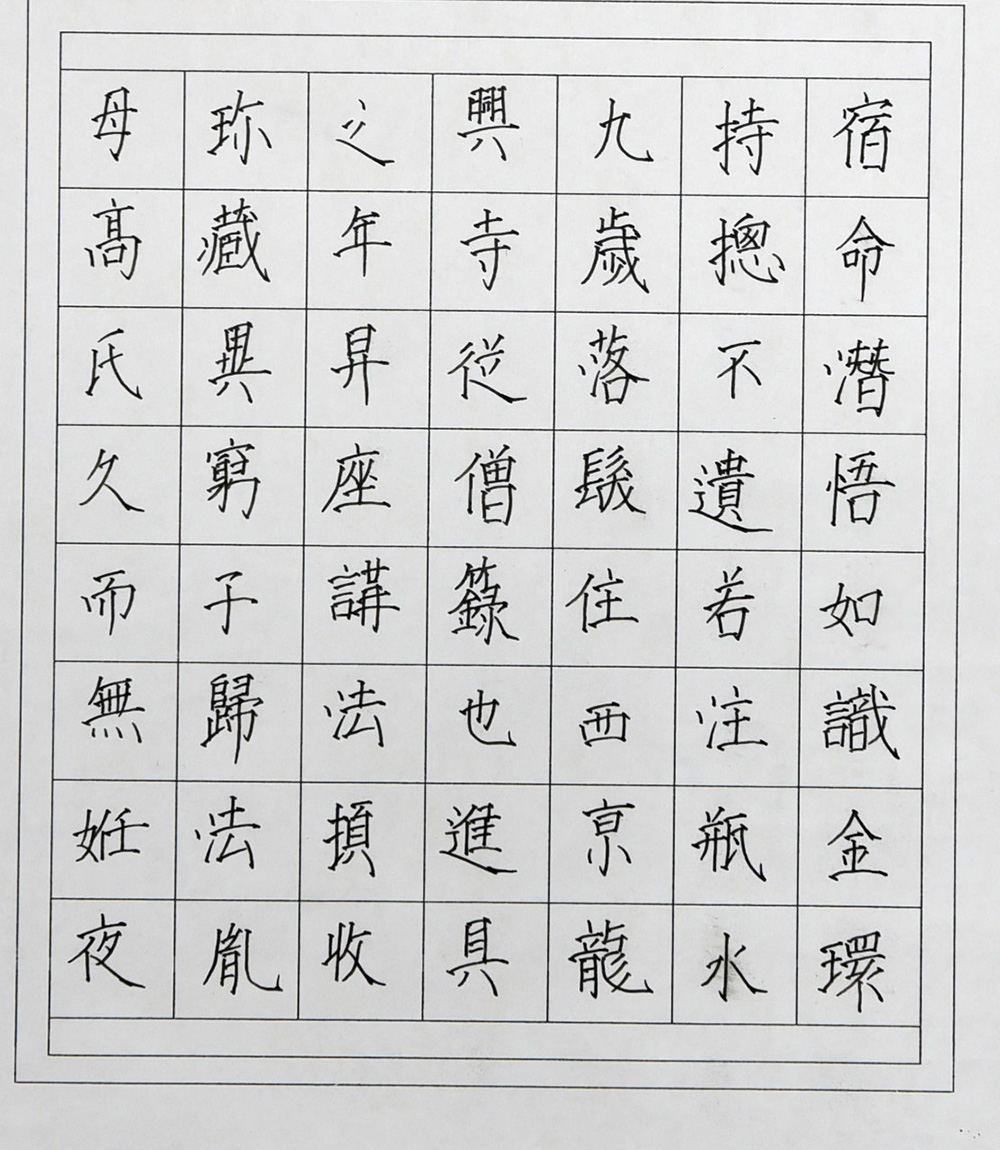 宿命潛悟如識金環
持摠不遺若注瓶水
九歲落髮住西京龍
興寺從僧籙也進具
之年昇座講法頓收
珎藏異窮子歸法胤
母髙氏久而無妊夜